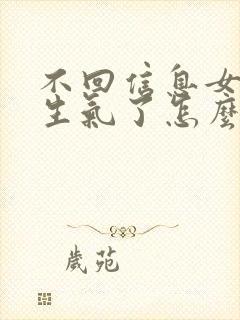 不回信息女
生氣了怎麽
歲苑